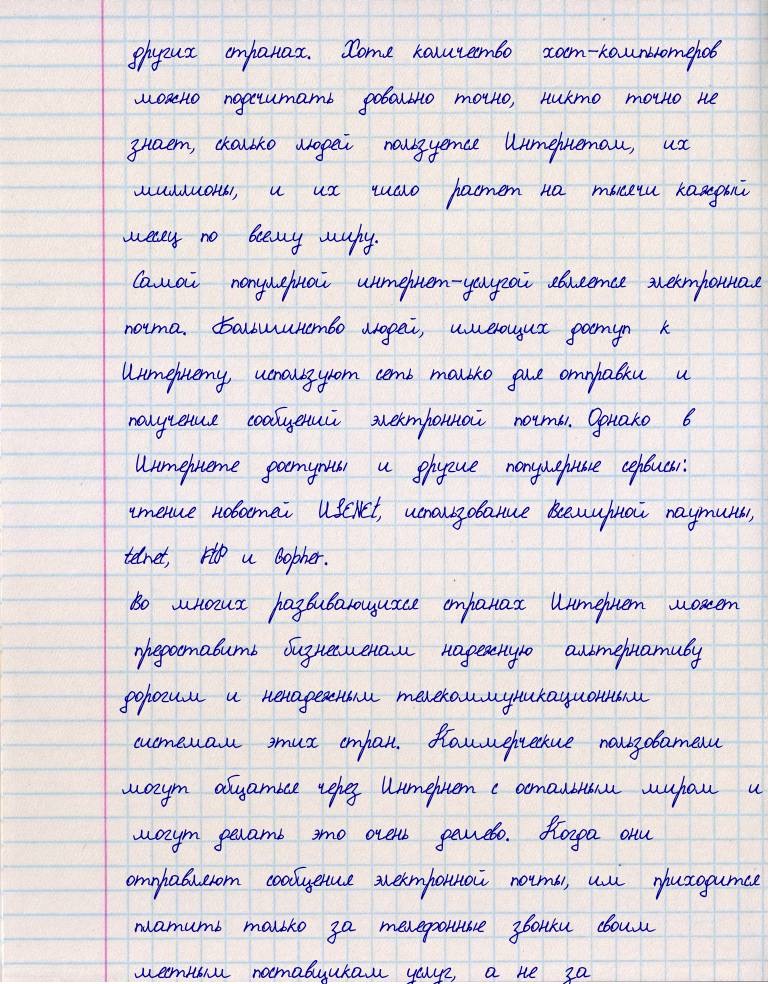 других странах. Хотя количество хост-компьютеров
можно подсчитать довольно точно, никто точно не
знает, сколько людей пользуется Интернетом, их
миллионы, и их число растет на тысячи каждый
месяц по всему миру.
Самой популярной интернет-услугой является электронная
почта. Большинство людей, имеющих доступ к
Интернету, используют сеть только для отправки и
получения сообщений электронной почты. Однако в
Интернете доступны и другие популярные сервисы:
чтение новостей USENET, использование Всемирной паутины,
telnet, FTP и Gopher.
Во многих развивающихся странах Интернет может
предоставить бизнесменам надежную альтернативу
дорогим и ненадежным телекоммуникационным
системам этих стран. Коммерческие пользователи
могут общаться через Интернет с остальным миром и
могут делать это очень дешево. Когда они
отправляют сообщения электронной почты, им приходится
платить только за телефонные звонки своим
местным поставщикам услуг, а не за